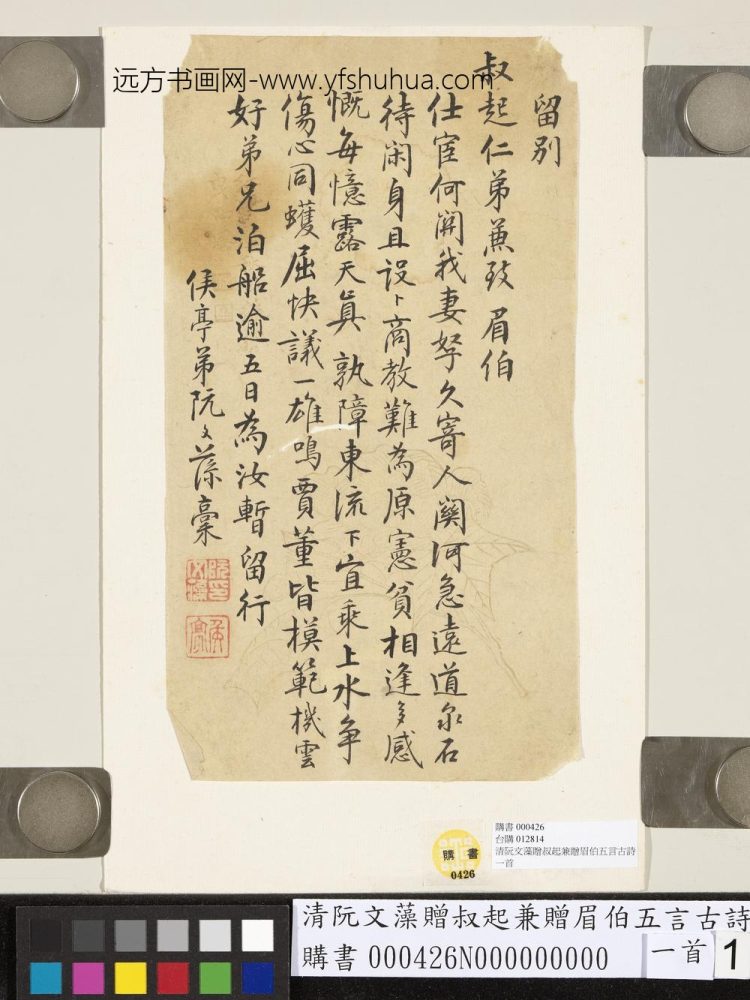 远方书画网-www.yfshuhua.com
留別
叔起仁弟兼致眉伯
仕宦何關我妻孥久寄人關河急遠道泉石
待閑身且設卜商教難為原憲貧相逢多感
慨每憶露天真孰障東流下宜乘上水爭
傷心同蠖屈快議一雄鳴賈董皆模範機雲
好弟兄泊船逾五日為汝暫留行
侯亭弟阮文藻稾
購書 000426
台購 012814
清阮文藻贈叔起兼贈眉伯五言古詩
一首
購書
0426
清阮文藻贈叔起兼贈眉伯五言古詩
購書 000426N000000000 一首 1